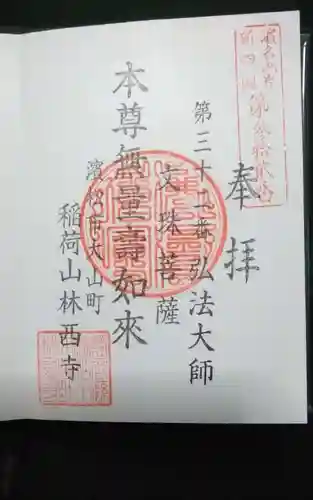 奉拝
第三十二番 弘法大師
文珠菩薩
本尊無量壽如來
濱松市大山町
稲荷山林西寺